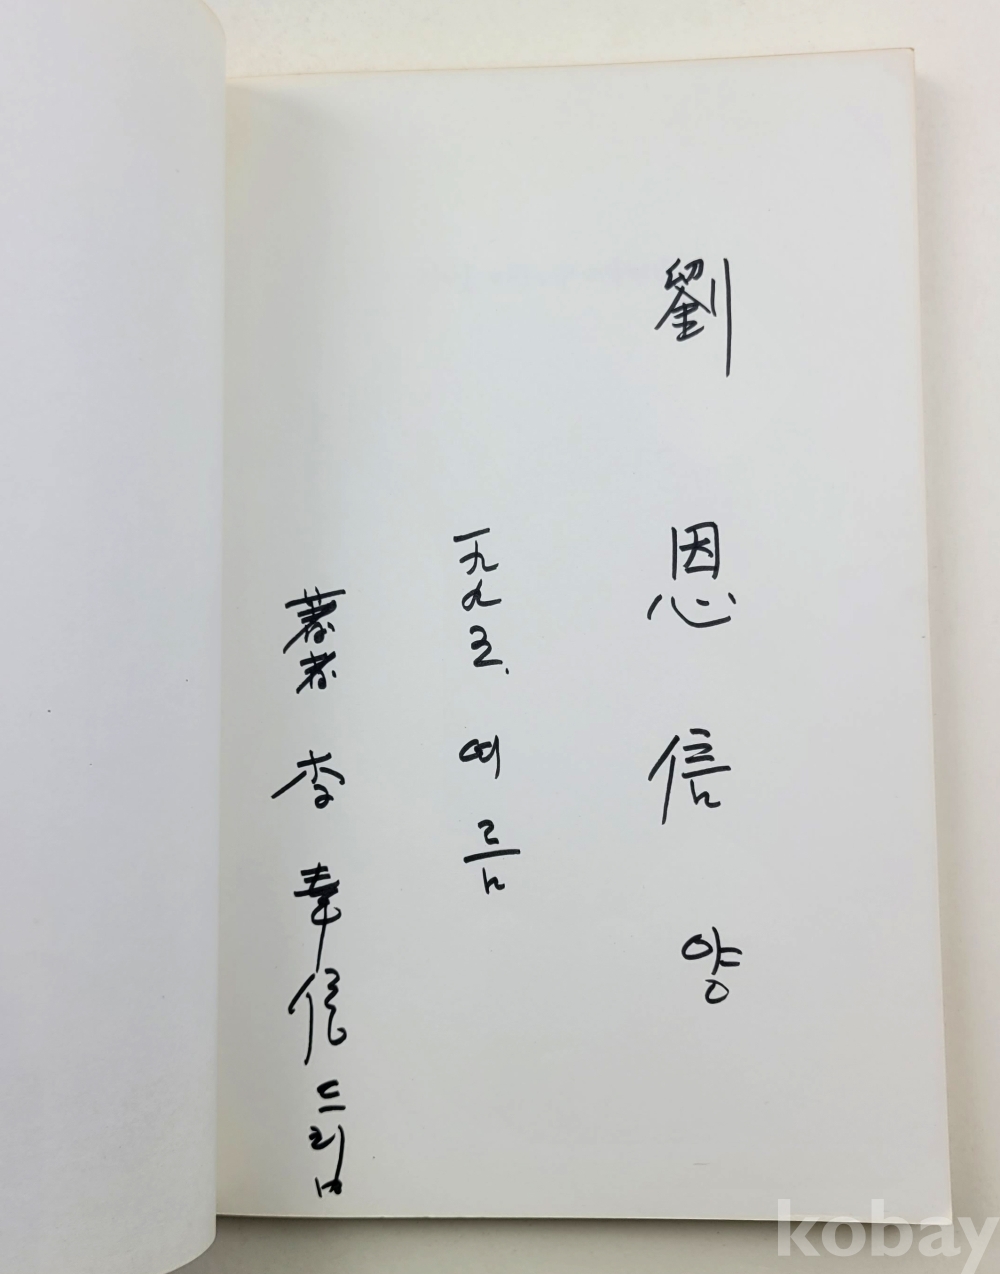 劉 恩信 양
一九九五. 여름
著者 李奉信 드림
kobay